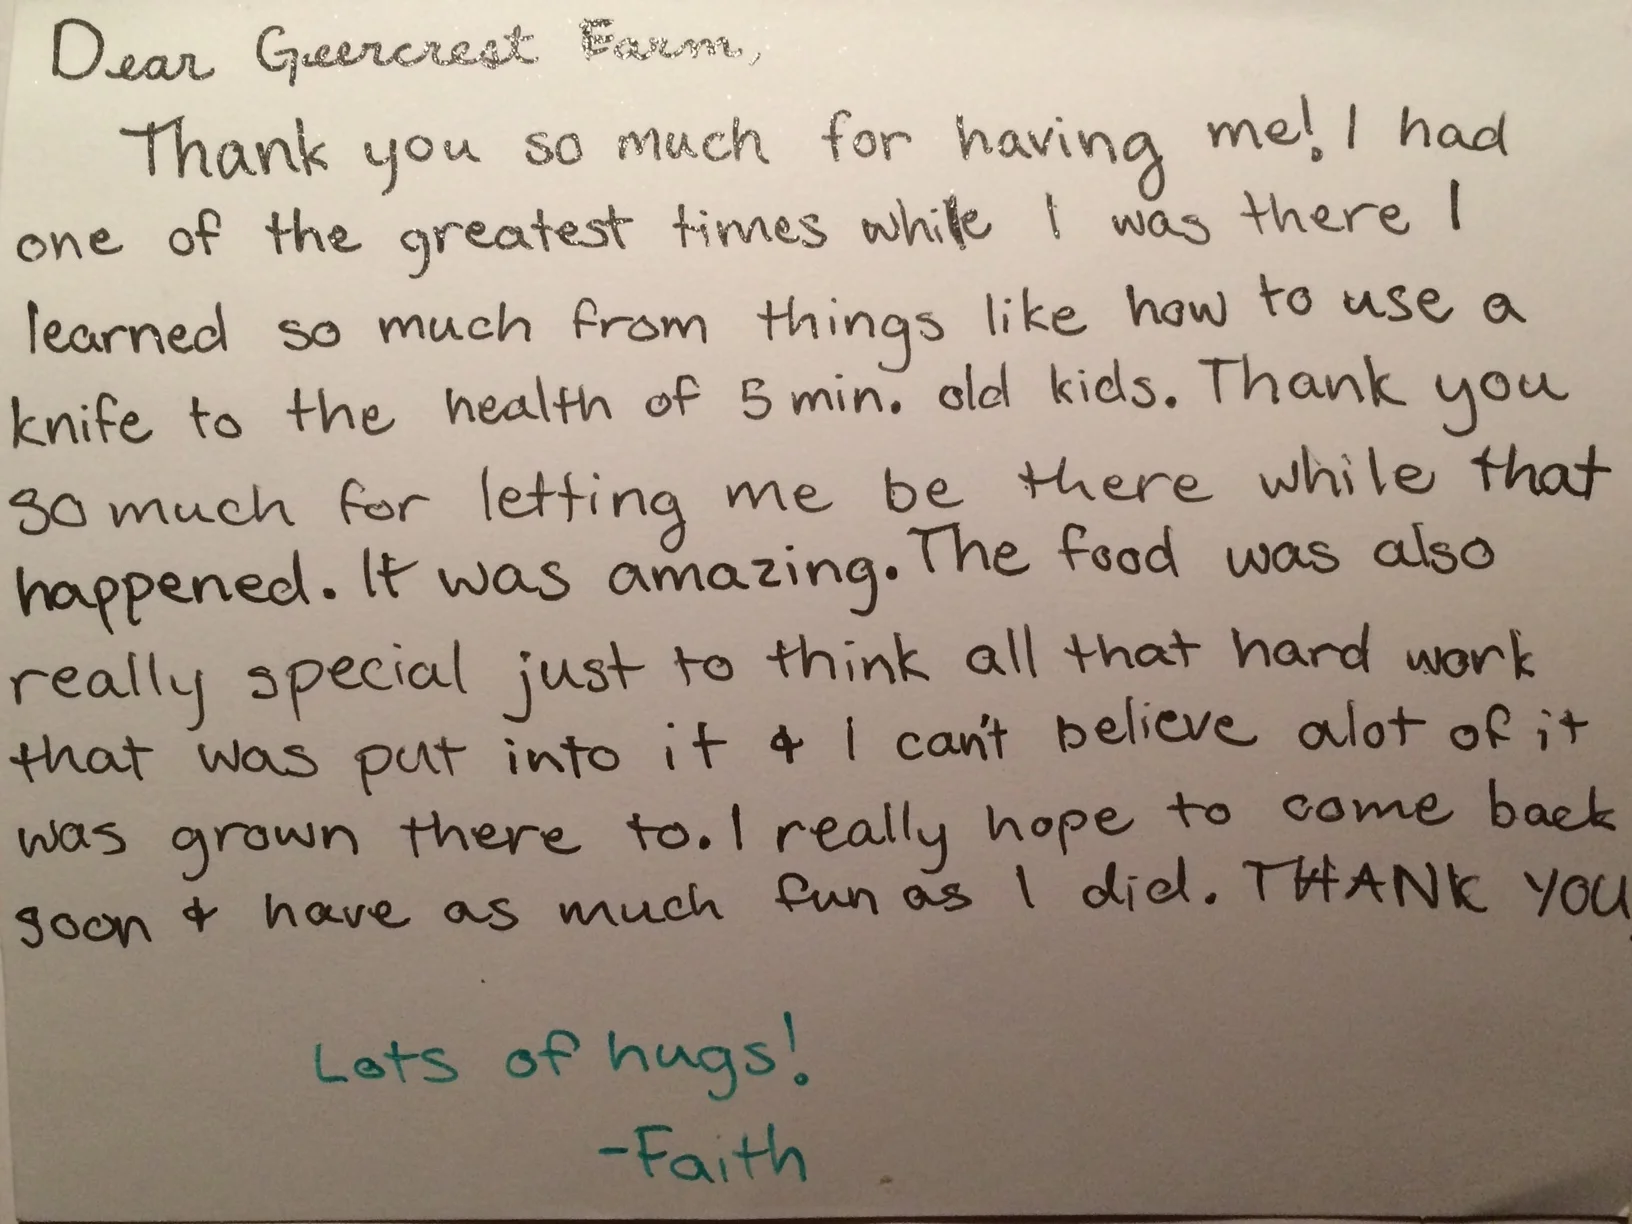 Dear Geercrest Farm,
Thank you so much for having me! I had
one of the greatest times while I was there I
learned so much from things like how to use a
knife to the health of 5 min. old kids. Thank you
so much for letting me be there while that
happened. It was amazing. The food was also
really special just to think all that hard work
that was put into it & I can't believe alot of it
was grown there to. I really hope to come back
soon & have as much fun as I did. THANK YOU
Lots of hugs!
-Faith